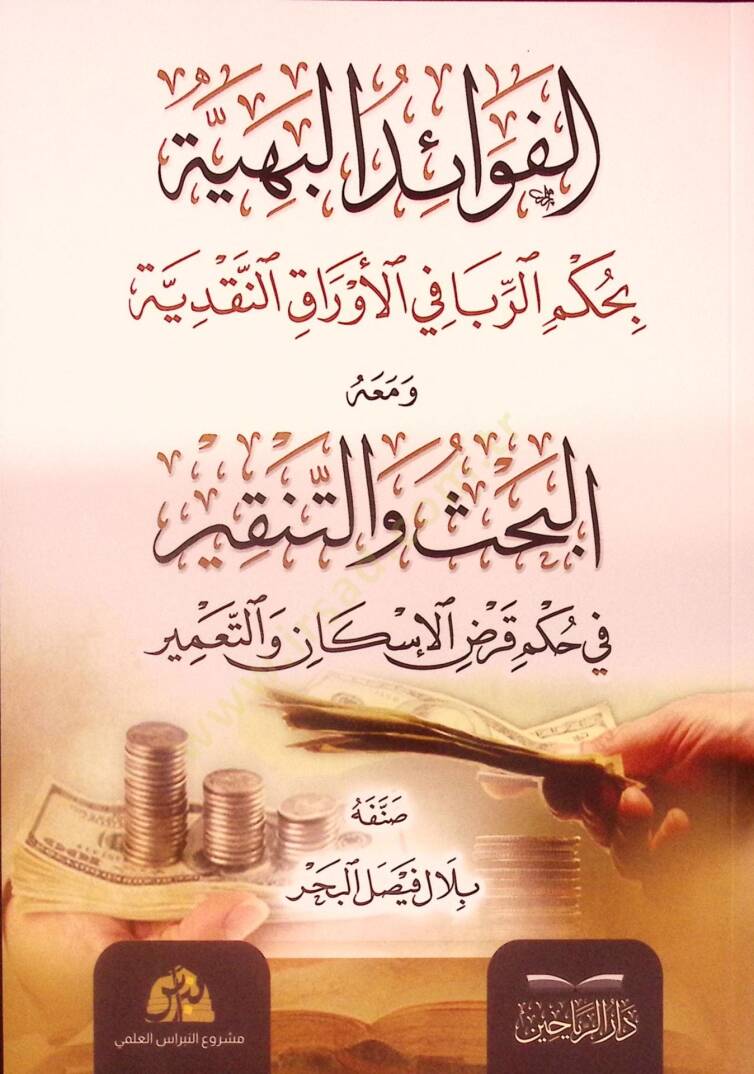 الفَوَائِدُ البَهِيَّة
بِحُكْمِ الرِّبَا فِي الأَوْرَاقِ النَّقْدِيَّة
وَمَعَهُ
البَحْثُ وَالتَّنْقِيْر
فِي حُكْمِ قَرْضِ الإِسْكَانِ وَالتَّعْمِيْر
صَنَّفَهُ
بِلَال فَيْصَل البَحْر
دَارُ الرَّيَاحِين
نبراس
مشروع النبراس العلمي